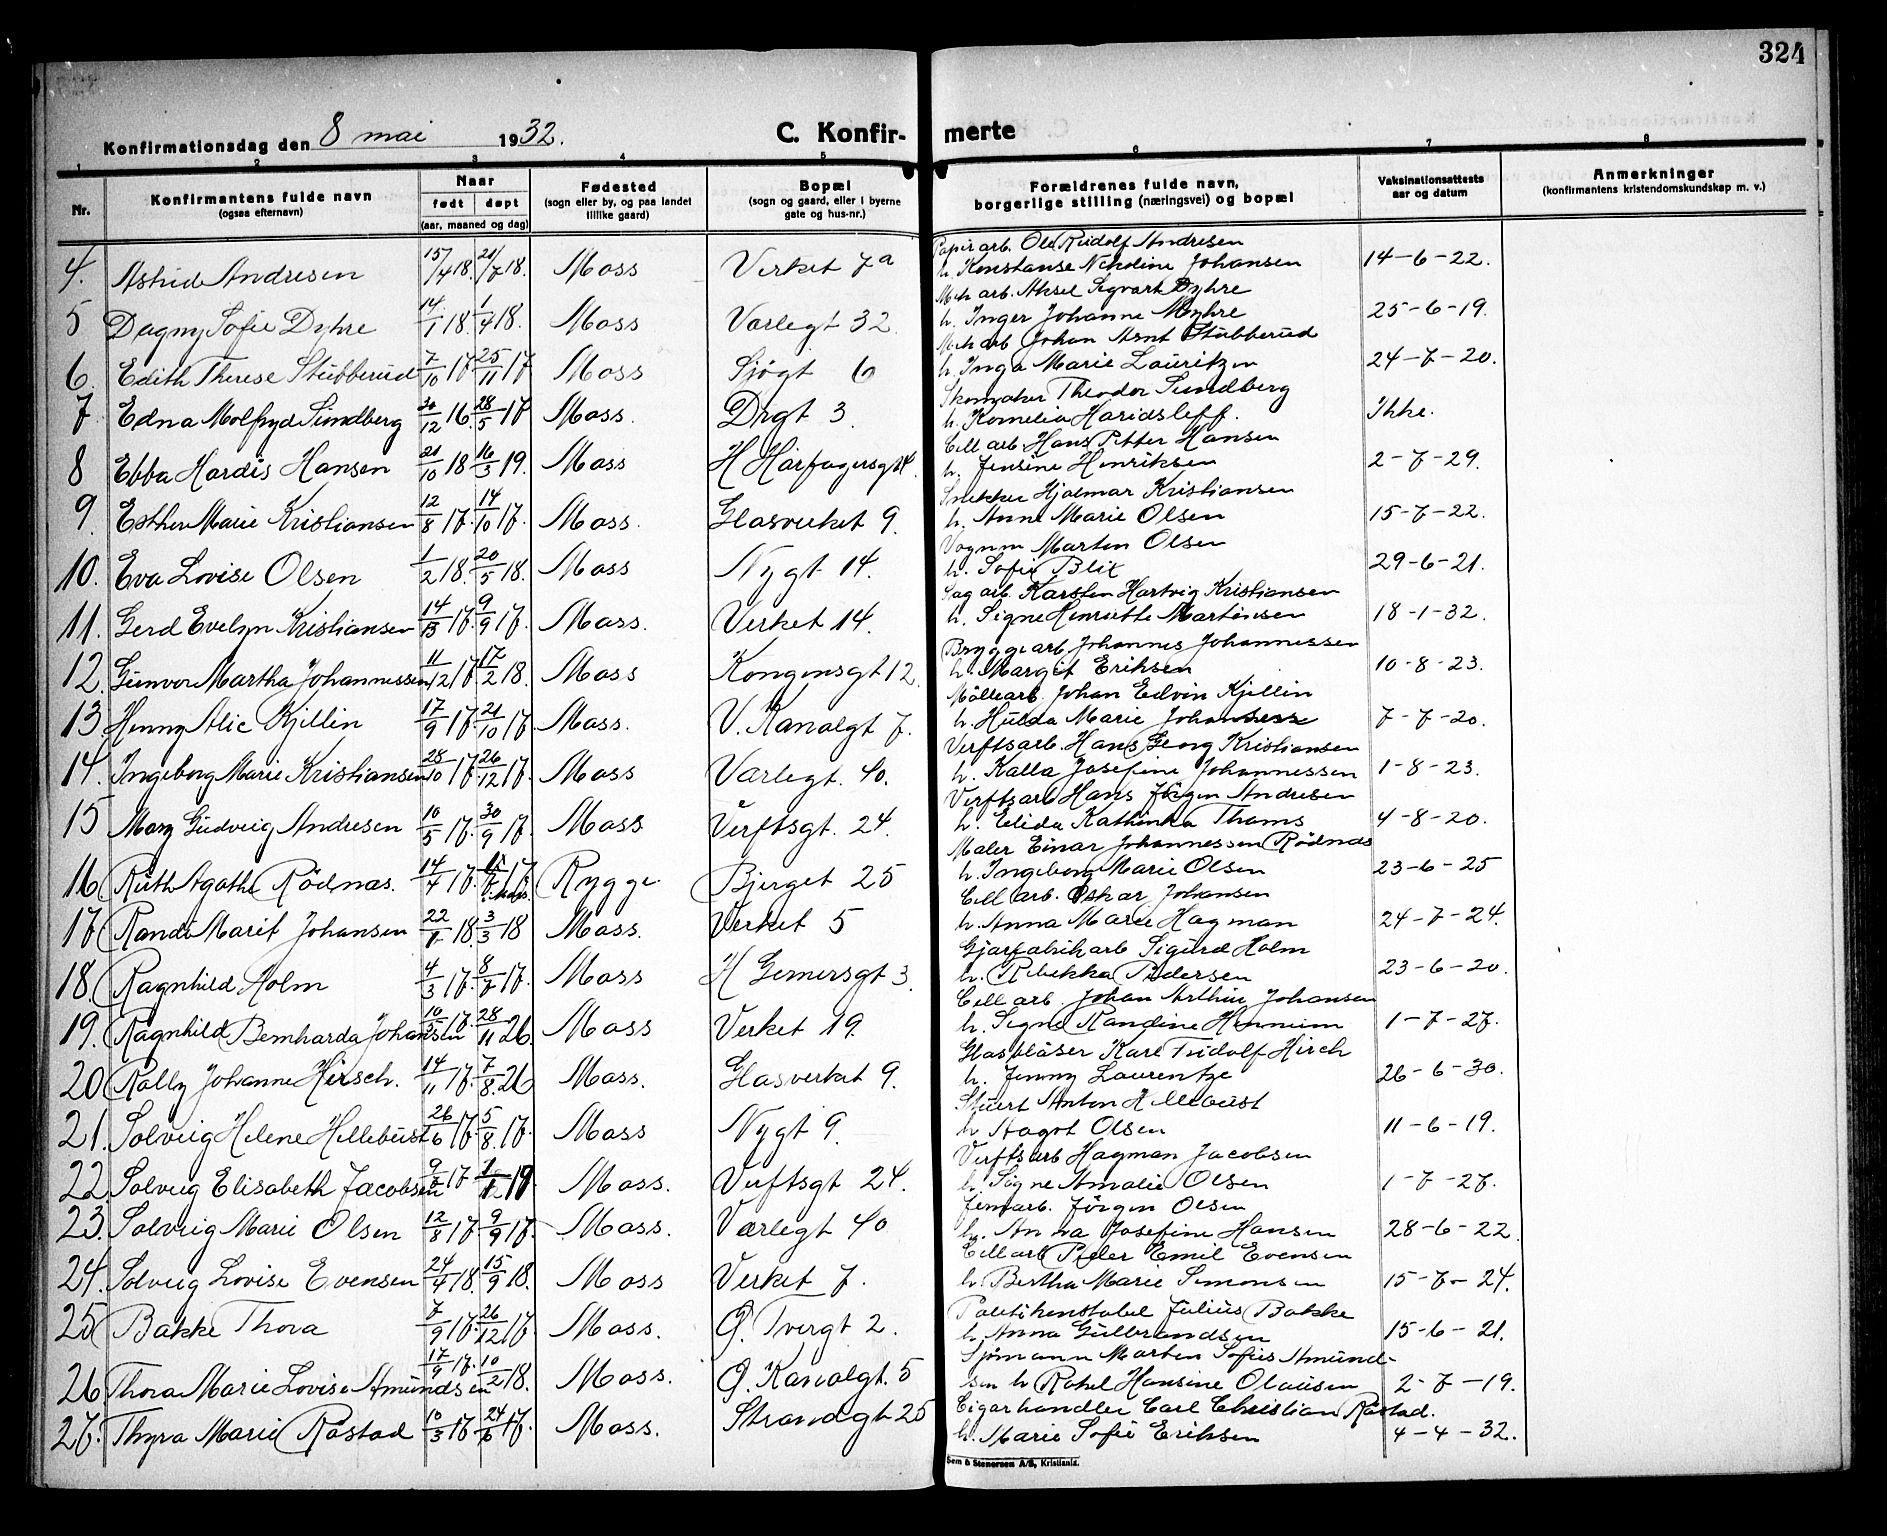 324
Konfirmationsdag den 8 mai 1932.
C. Konfirmerte
1 2 3 4 5 6 7 8
Nr.
Konfirmantens fulde navn
(ogsaa efternavn)
Naar
født døpt
(aar, maaned og dag)
Fødested
(sogn eller by, og paa landet
tillike gaard)
Bopæl
(sogn og gaard, eller i byerne
gate og hus-nr.)
Forældrenes fulde navn,
borgerlige stilling (næringsvei) og bopæl
Vaksinationsattests
aar og datum
Anmerkninger
(konfirmantens kristendomskundskap m. v.)
Papirarb. Ole Rudolf Andresen
4. Astrid Andresen 15/4 18. 21/7 18. Moss Verket 7a h. Konstanse Nikoline Johansen 14-6-22.
Mek arb. Aksel Sigvart Dyhre
5 Dagny Sofie Dyhre 14/1 18. 1/4 18. Moss Varlegt 32. h. Inger Johanne Myhre 25-6-19.
Mek arb Johan Arnt Stubberud
6. Edith Therese Stubberud 7/10 17 25/11 17 Moss Sjøgt 6 h. Inga Marie Lauritzen 24-7-20.
Skomaker Theodor Sundberg
7. Edna Molfryd Sundberg 30/12 16 28/5 17 Moss. Drgt 3. h. Kornelia Haridsleff. Ikke.
Cell arb. Hans Petter Hansen
8 Ebba Hardis Hansen 21/10 18 16/3 19. Moss H Hårfagersgt 14. h. Jensine Henriksen 2-7-29.
Snekker Hjalmar Kristiansen
9. Esther Marie Kristiansen 12/8 17. 14/10 17. Moss. Glasverket 9. h. Anne Marie Olsen 15-7-22.
Vognm Marten Olsen
10. Eva Lovise Olsen 1/2 18. 20/5 18. Moss Nygt 14. h. Sofie Blix 29-6-21.
Sag arb. Karsten Hartvig Kristiansen
11. Gerd Evelyn Kristiansen 17. 9/9 17. Moss. Verket 14. h. Signe Henriette Martinsen 18-1-32.
Bryggearb Johannes Johannessen
12. Gunvor Martha Johannessen 11/12 17. 17/2 18. Moss Kongensgt 12. h. Margit Eriksen 10-8-23.
Møllearb. Johan Edvin Kjellin
13. Henny Alie Kjellin 17/9 17. 21/10 17. Moss. V. Kanalgt 7. h. Hulda Marie Johansen 7-7-20.
Verftsarb. Hans Georg Kristiansen
14. Ingeborg Marie Kristiansen 28/10 17. 26/12 17. Moss Varlegt. 40. h. Kalla Josefine Johannessen 1-8-23.
Verftsarb Hans Jørgen Andresen
15 Mary Gudveig Andresen 10/5 17. 30/9 17. Moss Verftsgt. 24. h. Elida Kathinka Thoms 4-8-20.
Maler Einar Johannessen Rødnas
16 Ruth Agathe Rødnas. 14/4 17. 17. Rygge. Bjerget 25 h. Ingeborg Marie Olsen 23-6-25
Cell arb. Oskar Johansen
17. Randi Marit Johansen 22/1 18. 3/3 18 Moss. Verket 5 h. Anna Marie Hagman 24-7-24.
Gjærfabrikarb Sigurd Holm
18. Ragnhild Holm 4/3 17. 8/7 17. Moss H Gernersgt 3. h. Rebekka Pedersen 23-6-20.
Cell arb. Johan Arthur Johansen
19. Ragnhild Bernharda Johansen 17. 28/11 26. Moss Verket 19. h. Signe Randine Hennum 1-7-27.
Glasblåser Karl Tudolf Hirch
20 Rally Johanne Hirsch. 14/11 17. 7/8. 26 Moss. Glasverket 9. h. Jenny Laurentze 26-6-30.
Stuert Anton Hillebust
21. Solveig Helene Hillebust 26/6 17. 5/8. 17. Moss Nygt 9. h. Aagot Olsen 11-6-19.
Verftsarb Hagman Jacobsen
22. Solveig Elisabeth Jacobsen 17 19 Moss. Verftsgt 24. h. Signe Amalie Olsen 1-7-27.
Jernarb. Jørgen Olsen
23. Solveig Marie Olsen 12/8 17. 9/9 17. Moss. Værlegt 40 h. Anna Josefine Hansen 28-6-22
Cell arb Peder Emil Evensen
24. Solveig Lovise Evensen 24/4 18. 15/9 18. Moss Verket 7. h Bertha Marie Simonsen 15-7-24.
Politikonstabel Julius Bakke
25 Bakke Thora 7/9 17. 26/12 17. Moss. Ø. Tvergt 2. h Anna Gulbrandsen 15-6-21.
Sjømann Marten Sofus Amund-
26 Thora Marie Lovise Amundsen 17/9 17. 10/2 18. Moss. Ø. Kanalgt. 5 sen h Rakel Hansine Olausen 2-7-19.
Cigarhandler Carl Christian Råstad.
27. Thyra Marie Råstad 10/3 17 24/6 17. Moss. Strandgt 25 h. Marie Sofie Eriksen 4-4-32.
Sem & Stenersen A/S, Kristiania.